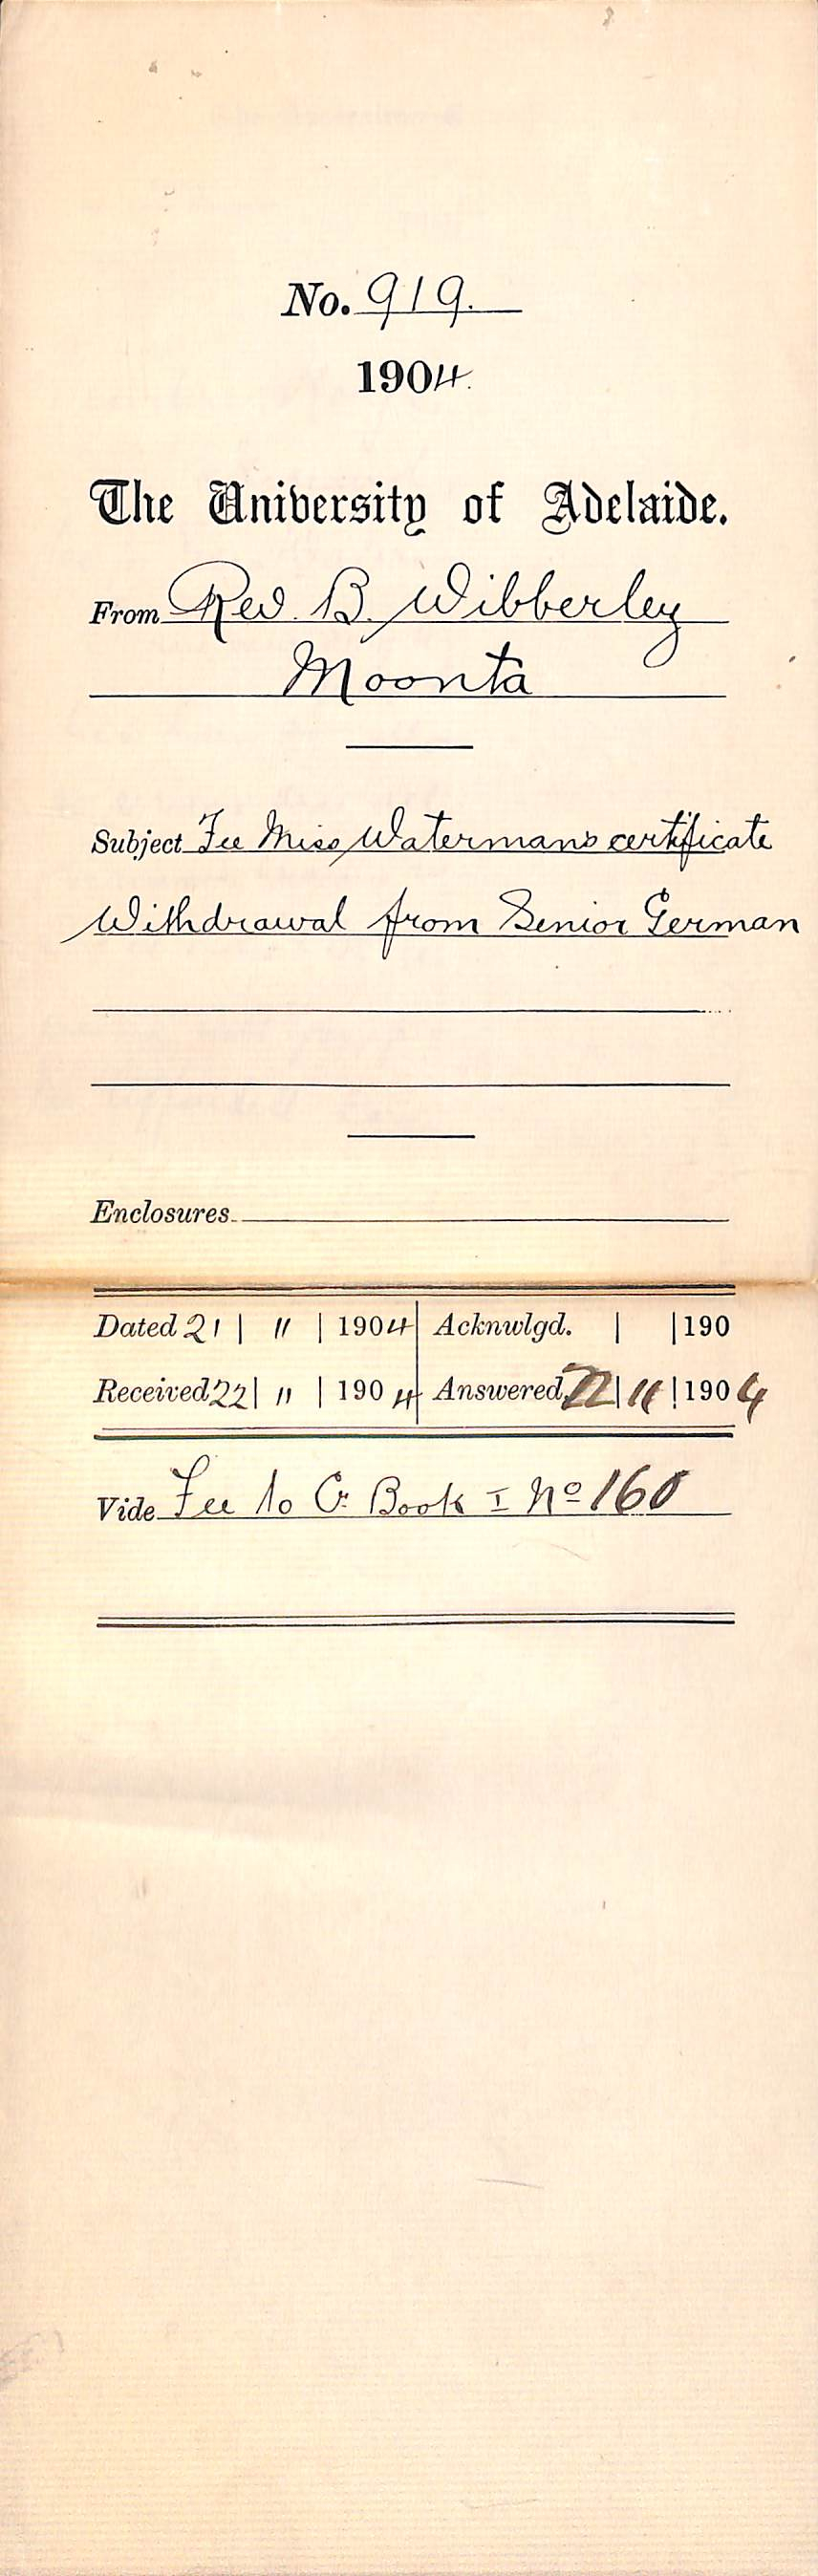 No. 919.
1904.
The University of Adelaide.
From Rev. B. Wibberley
Moonta
Subject Fee Miss Watermans certificate
Withdrawal from Senior German
Enclosures
Dated 21 | 11 | 1904 Acknwlgd. | | 190
Received 22 | 11 | 1904 Answered 22 | 11 | 1904
Vide Fee to C. Book I No 160